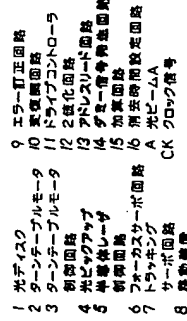 1 光ディスク
2 ターンテーブルモータ
3 ターンテーブルモータ
制御回路
4 光ピックアップ
5 半導体レーザ
制御回路
6 フォーカスサーボ回路
7 トラッキング
サーボ回路
8
9 エラー訂正回路
10 変復調回路
11 ドライブコントローラ
12 2値化回路
13 アドレスリード回路
14 ダミー信号発生回路
15 加算回路
16 消去時間設定回路
A 光ビームA
CK クロック信号